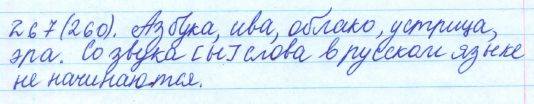 267(260). Азбука, ива, облако, устрица,
эра. Со звука [ы] слова в русском языке
не начинаются.